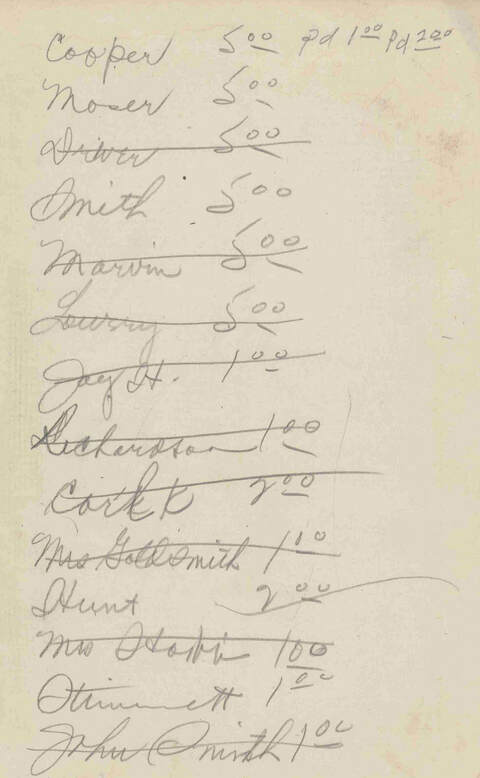 Cooper 5.00 Pd 1.00 Pd 2.00
Moser 5.00
Driver 5.00
Smith 5.00
Marvin 5.00
Lowery 5.00
Jay H. 1.00
Richardson 1.00
2.00
Mrs Goldsmith 1.00
Hunt 2.00
Mrs 1.00
Stinnett 1.00
John Smith 1.00